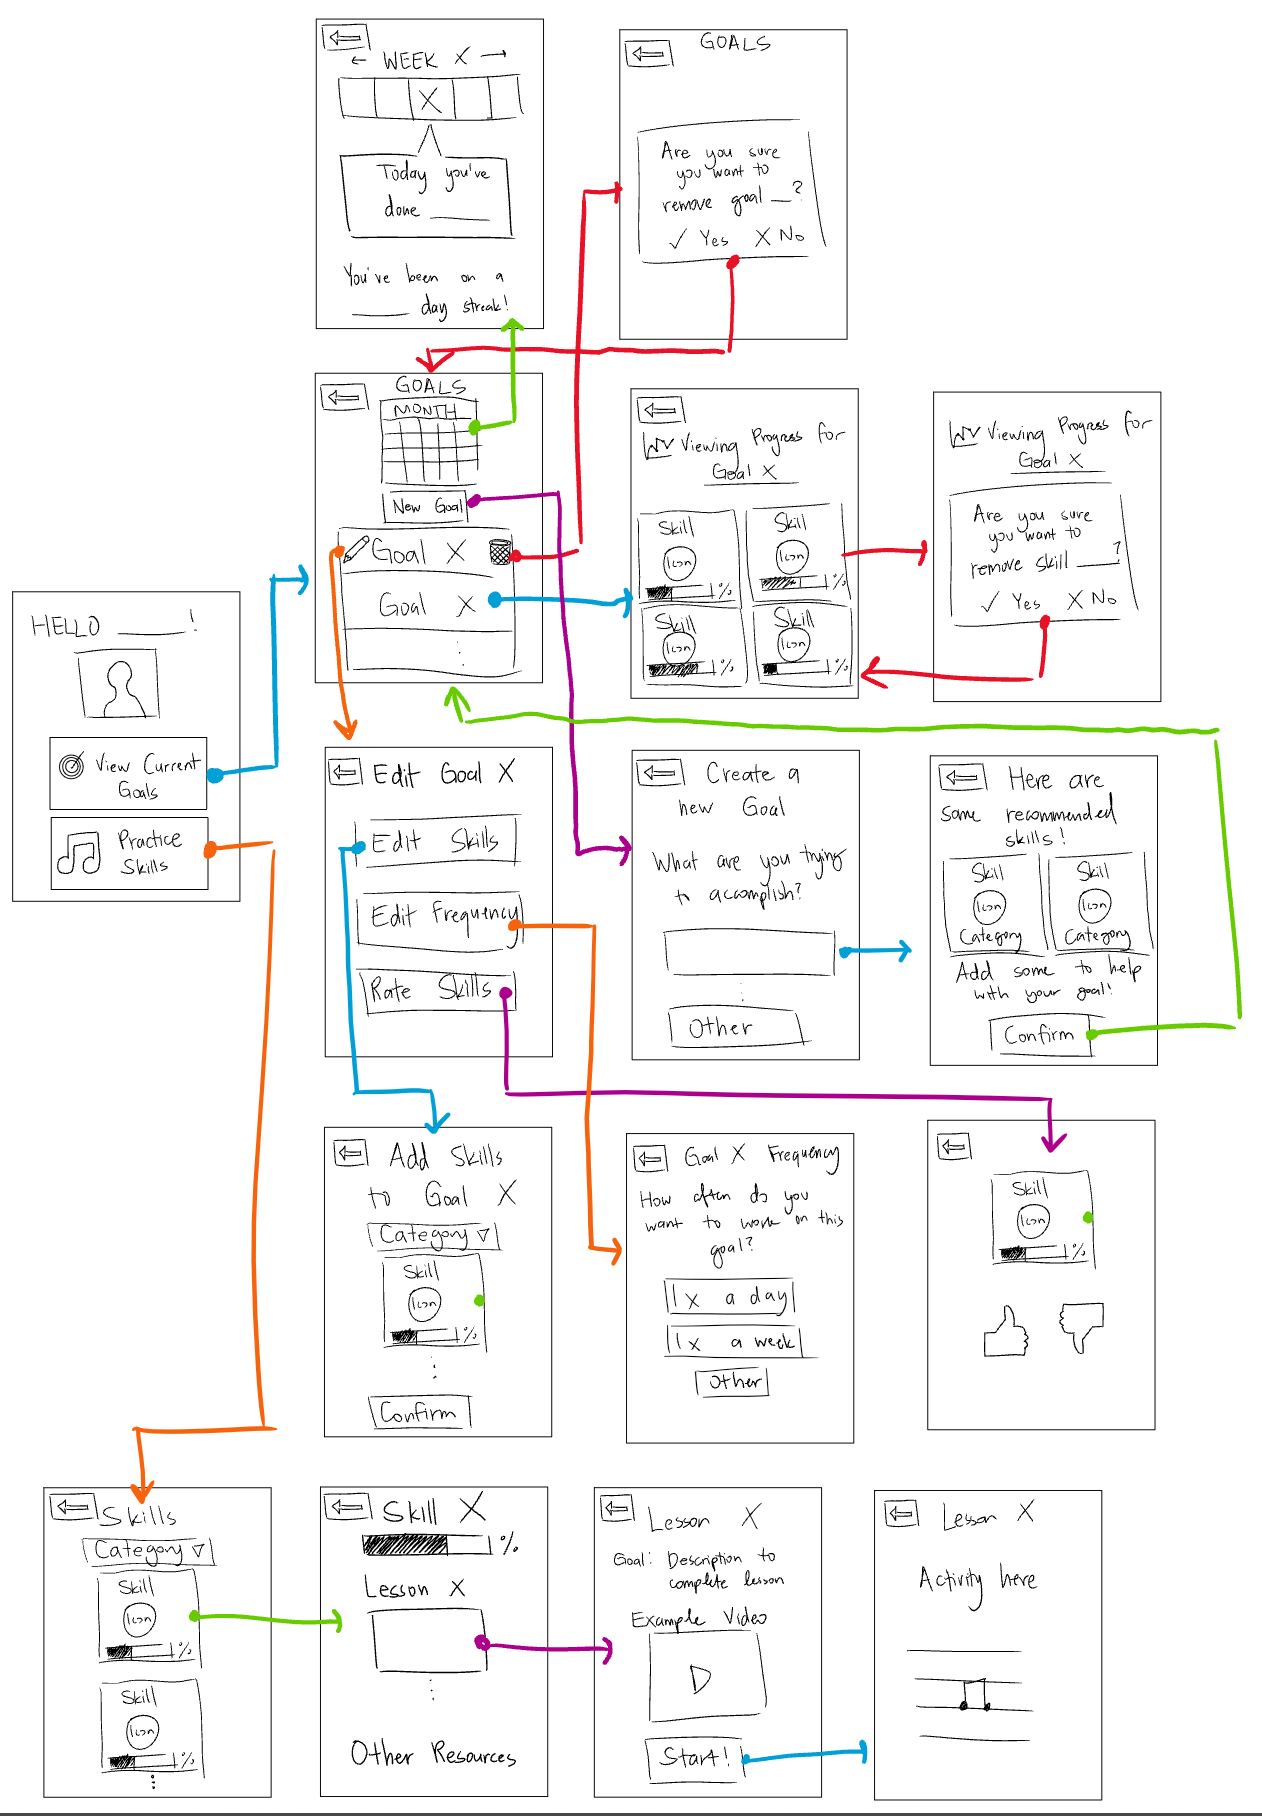 ← WEEK X →
X
Today you've
done ____
You've been on a
____ day streak!
GOALS
Are you sure
you want to
remove goal __?
✓ Yes X No
GOALS
MONTH
New Goal
Goal X
Goal X
⋮
Viewing Progress for
Goal X
Skill
Icon
%
Skill
Icon
%
Skill
Icon
%
Skill
Icon
%
Viewing Progress for
Goal X
Are you sure
you want to
remove skill ____?
✓ Yes X No
HELLO ____!
View Current
Goals
Practice
Skills
Edit Goal X
Edit Skills
Edit Frequency
Rate Skills
Create a
new Goal
What are you trying
to accomplish?
⋮
Other
Here are
some recommended
skills!
Skill
Icon
Category
Skill
Icon
Category
Add some to help
with your goal!
Confirm
Add Skills
to Goal X
Category ▽
Skill
Icon
%
⋮
Confirm
Goal X Frequency
How often do you
want to work on this
goal?
1x a day
1x a week
Other
Skill
Icon
%
Skills
Category ▽
Skill
Icon
%
Skill
Icon
%
⋮
Skill X
%
Lesson X
⋮
Other Resources
Lesson X
Goal: Description to
complete lesson
Example Video
Start!
Lesson X
Activity here